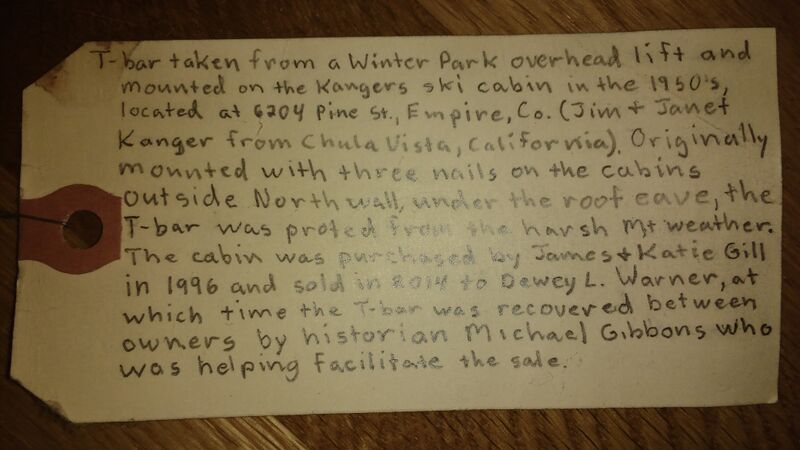 T-bar taken from a Winter Park overhead lift and
mounted on the Kangers ski cabin in the 1950's,
located at 6204 Pine St., Empire, Co. (Jim + Janet
Kanger from Chula Vista, California). Originally
mounted with three nails on the cabins
outside North wall, under the roof eave, the
T-bar was proted from the harsh Mt weather.
The cabin was purchased by James + Katie Gill
in 1996 and sold in 2014 to Dewey L. Warner, at
which time the T-bar was recovered between
owners by historian Michael Gibbons who
was helping facilitate the sale.